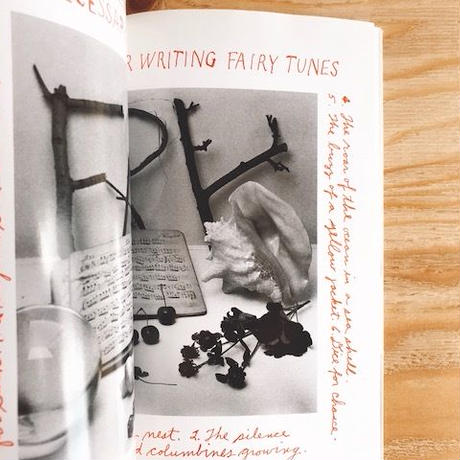 ECESSA
R WRITING FAIRY TUNES
4. The roar of the ocean in a sea shell.
5. The buzz of a yellow jacket 6 Dice for chance.
nest. 2. The silence
d columbines growing.